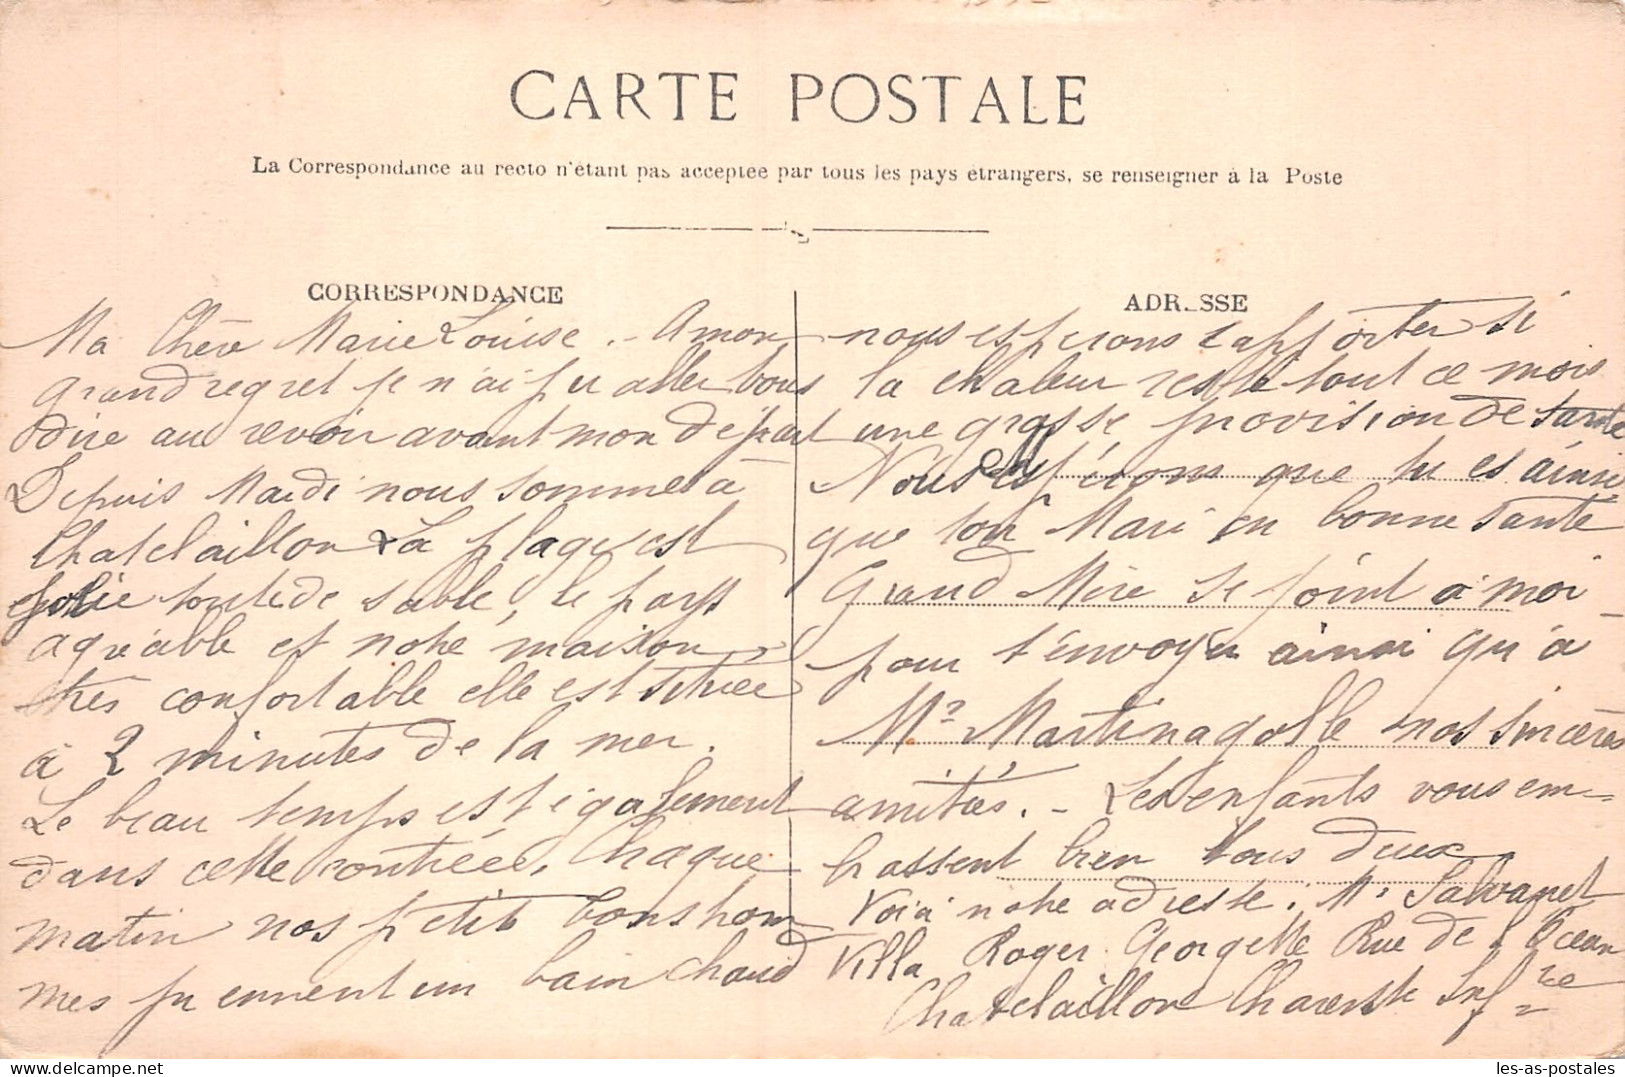 CARTE POSTALE
La Correspondance au recto n'étant pas acceptée par tous les pays étrangers, se renseigner à la Poste
CORRESPONDANCE
Ma Chère Marie Louise. - A mon
grand regret je n'ai pu aller vous
dire au revoir avant mon départ
Depuis Mardi nous sommes à
Chatelaillon La plage est
jolie toute de sable, le pays
agréable et notre maison
très confortable elle est située
à 2 minutes de la mer.
Le beau temps est également
dans cette contrée. Chaque
matin nos petits bonshom
mes prennent un bain chaud
ADRESSE
nous espérons rapporter si
la chaleur reste tout ce mois
une grosse provision de santé
Nous espérons que tu es ainsi
que ton Mari en bonne santé
Grand Mère se joint à moi
pour t'envoyer ainsi qu'à
Mr Martinagolle nos sincères
amitiés. - Les enfants vous em=
brassent bien tous deux
Voici notre adresse. Mr Salvanet
Villa Roger Georgette Rue de l'Ocean
Chatelaillon Charente Infre
les-as-postales